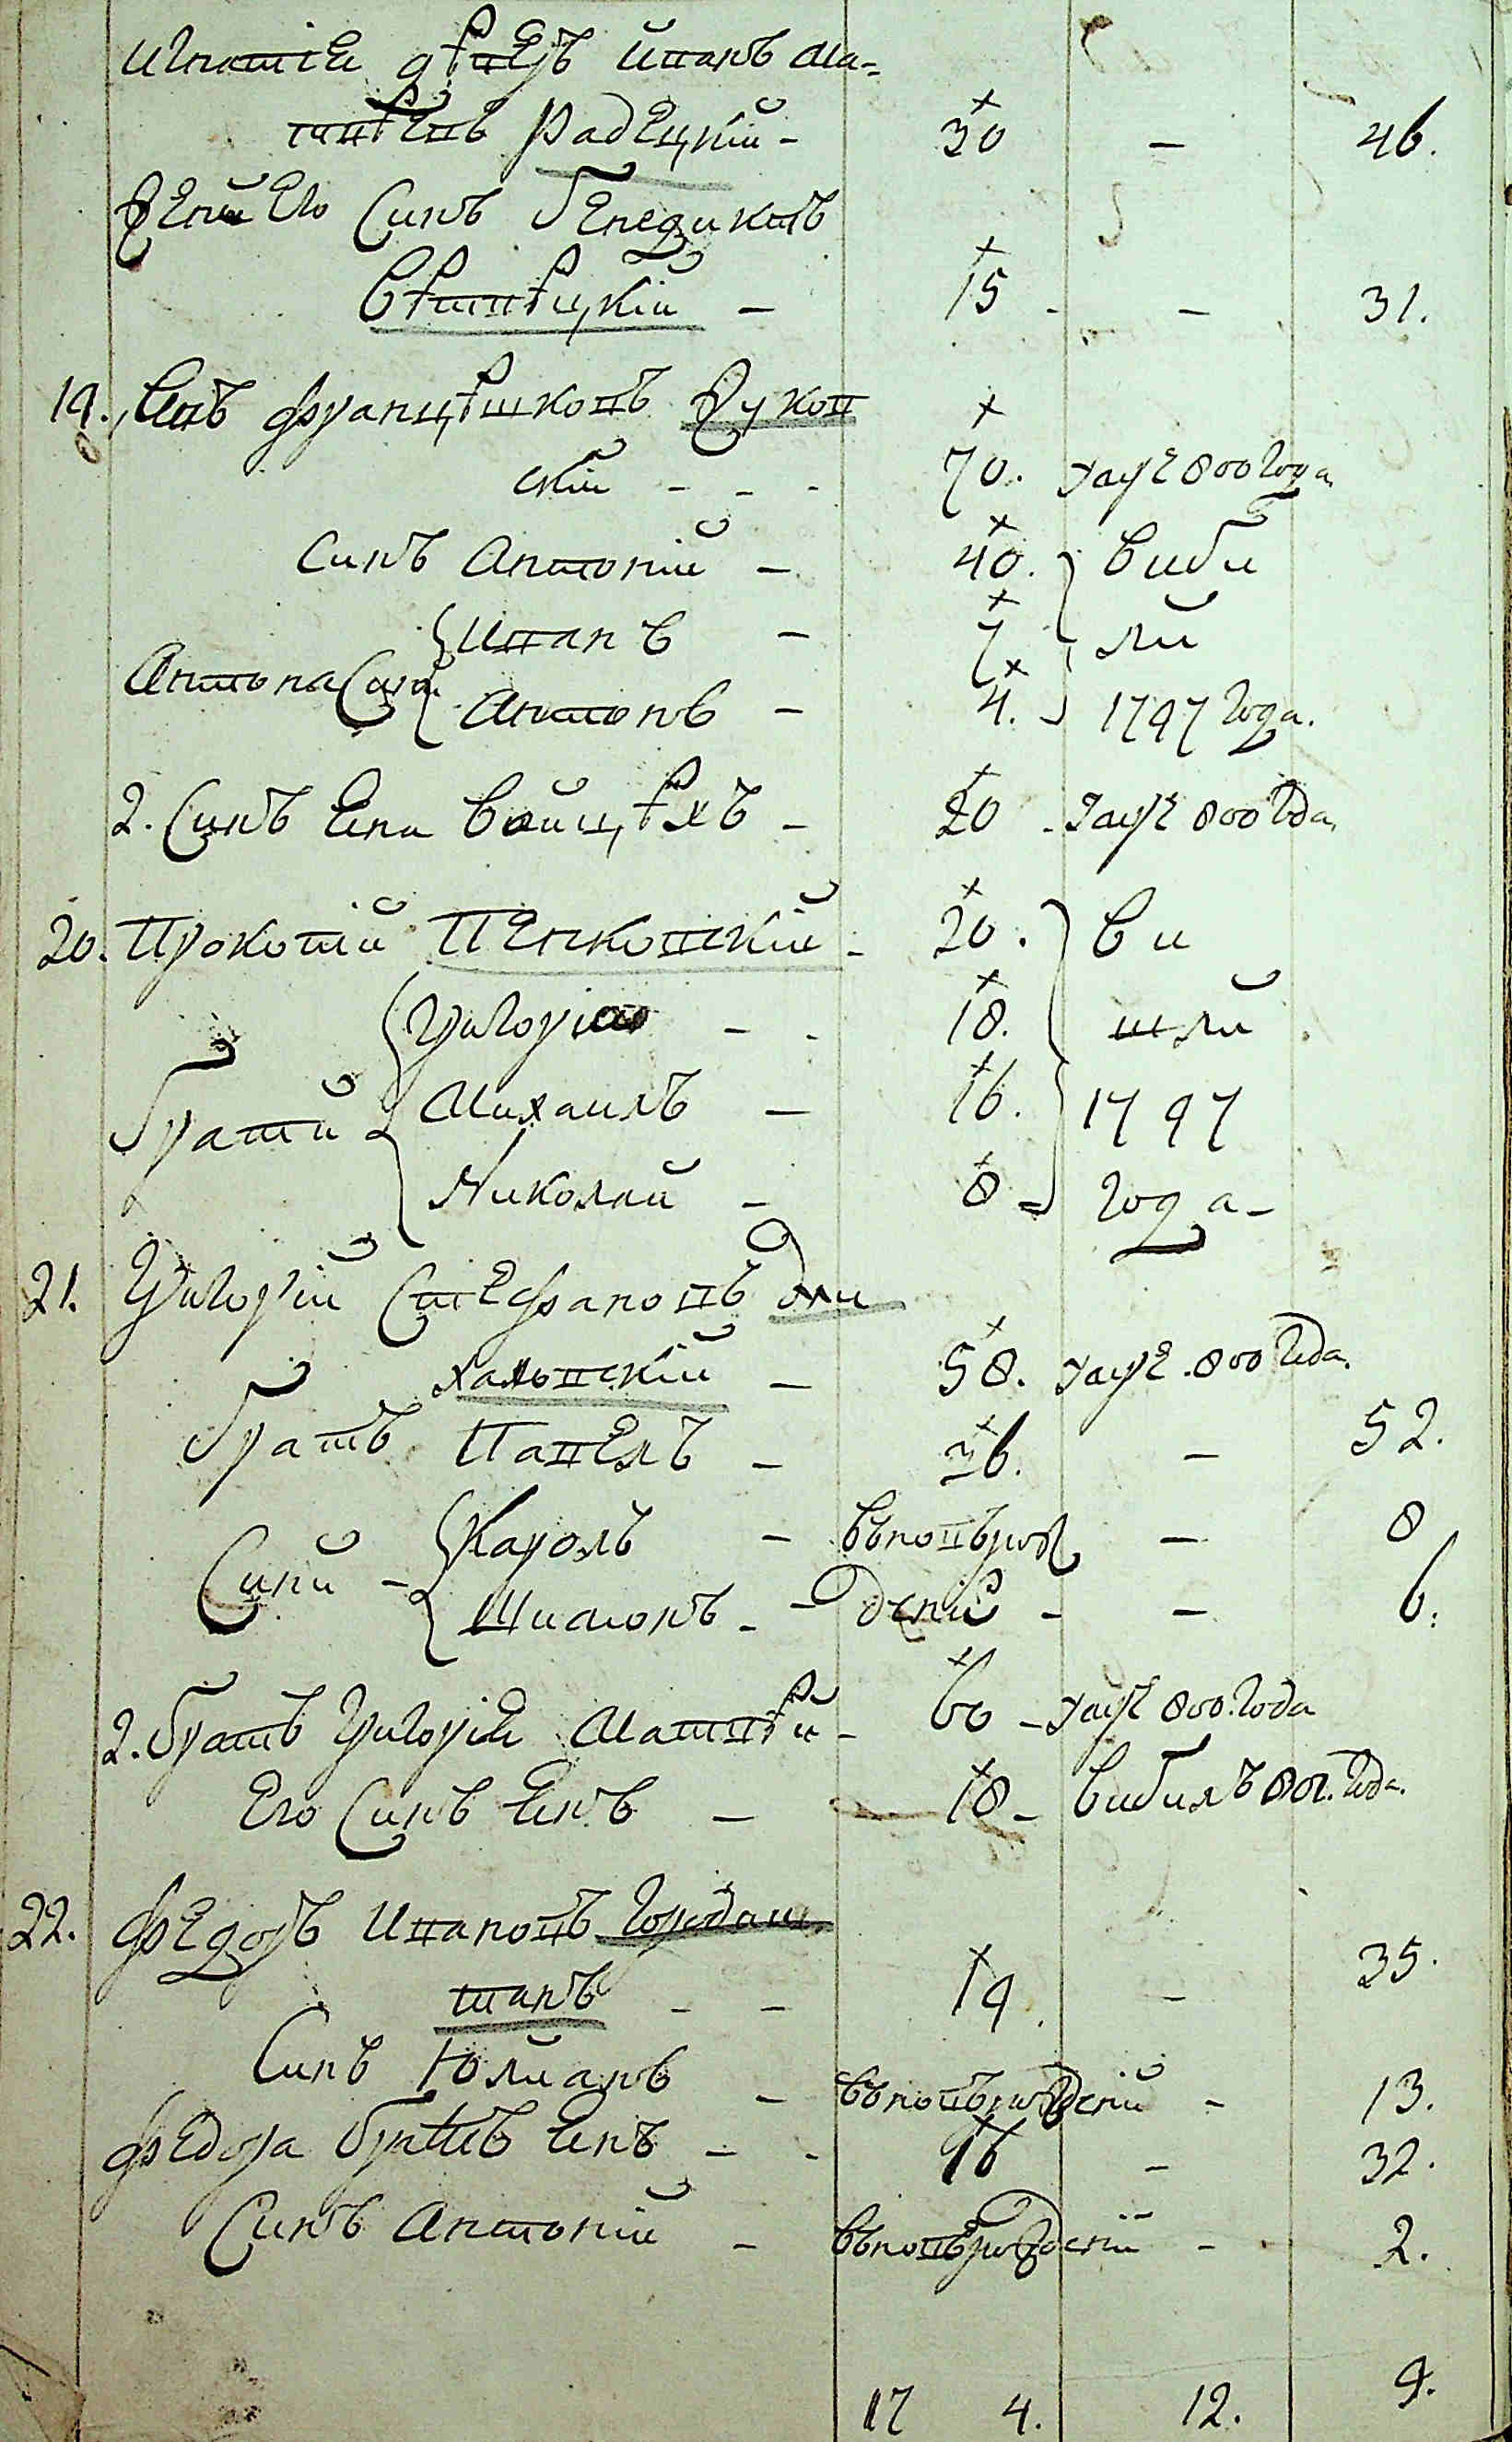 Игнатія дѣверъ Иванъ Ма-
твѣевъ Радецкій - 30 - 46.
Его Синъ Бенедиктъ
Вѣтвѣцкій - 15 - - 31.
19. Янъ Францѣшковъ Зуков
скій - - - 70. умре 800 года
Синъ Антоній - 40. виби
Иванъ - 7 ли
Антона Сини
Антонъ - 4. 1797 года.
2. Синъ Яна Войцѣхъ - 20 - умре 800 года
20. Прокопій Пенковскій - 20. ви
Григорій - - 18. шли
Брати Михаилъ - 16. 1797
Николай - 8 - года -
21. Григорій Стефановъ
хановскій - 58. умре 800 года.
Братъ Павелъ - 36. - 52.
Сини - Кароль - вьновьрож - 8
Шимонъ - - дений - - 6.
2. Братъ Григорія Матвѣй - 60 - умре 800 года
Его Синъ Янъ - 18 - вибилъ 801. года.
22. Федоръ Ивановъ
шанъ - - 19. - 35.
Синъ Юлианъ - вьновьрождений - 13.
Федора братъ Янъ - - 16 - 32.
Синъ Антоній - вьновьрождений - 2.
17 4. 12. 9.